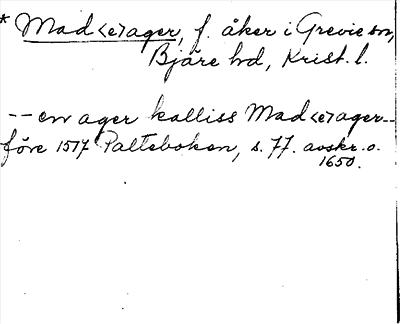 * Mad<e>ager, f. åker i Grevie sn,
Bjäre hd, Krist. l.
-- en ager kalliss Mad<e>ager --
före 1517 Palteboken, s. 77. avskr. o.
1650.